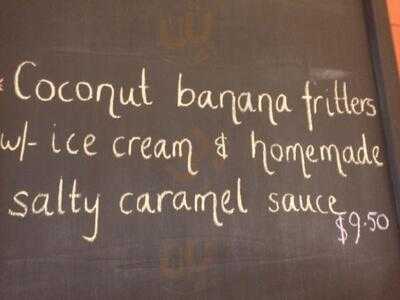 Coconut banana fritters
w/- ice cream & homemade
salty caramel sauce
$9.50